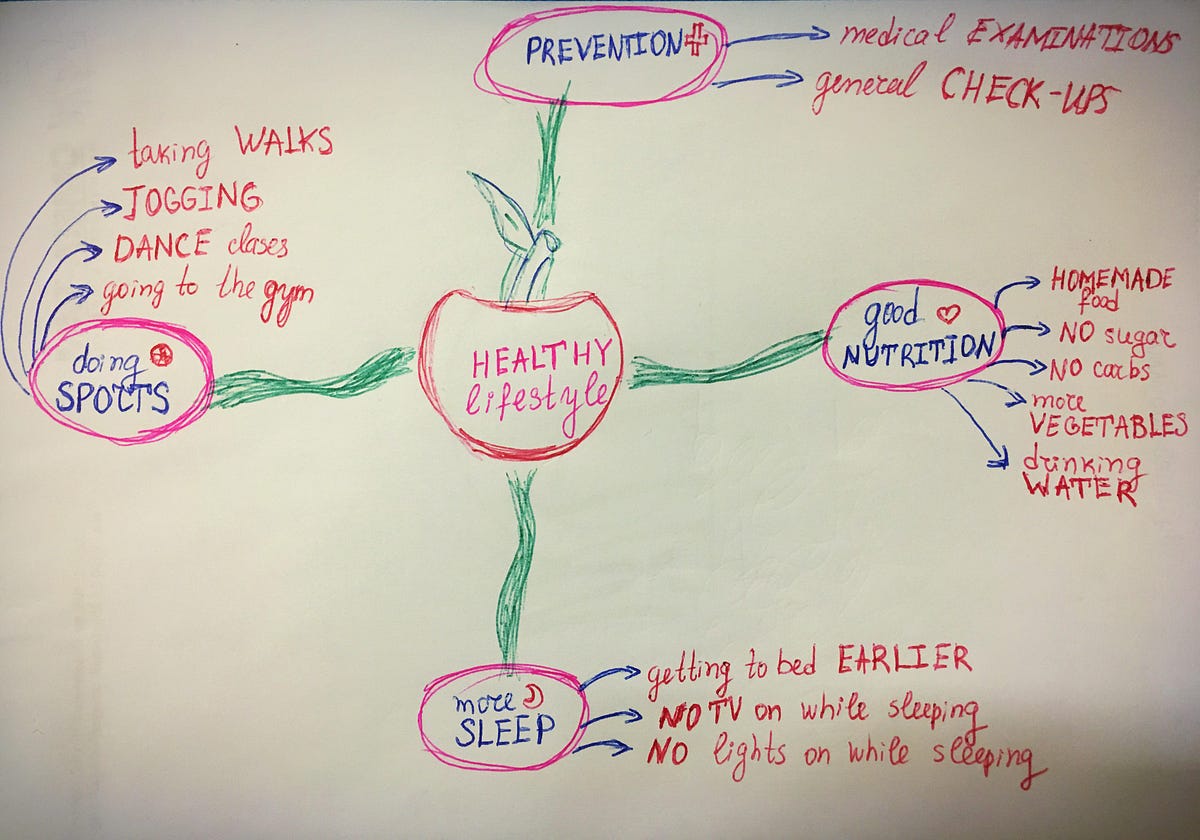 PREVENTION
medical EXAMINATIONS
general CHECK-UPS
taking WALKS
JOGGING
DANCE clases
going to the gym
doing
SPORTS
HEALTHY
lifestyle
good
NUTRITION
HOMEMADE
food
NO sugar
NO carbs
more
VEGETABLES
drinking
WATER
more
SLEEP
getting to bed EARLIER
NO TV on while sleeping
NO lights on while sleeping